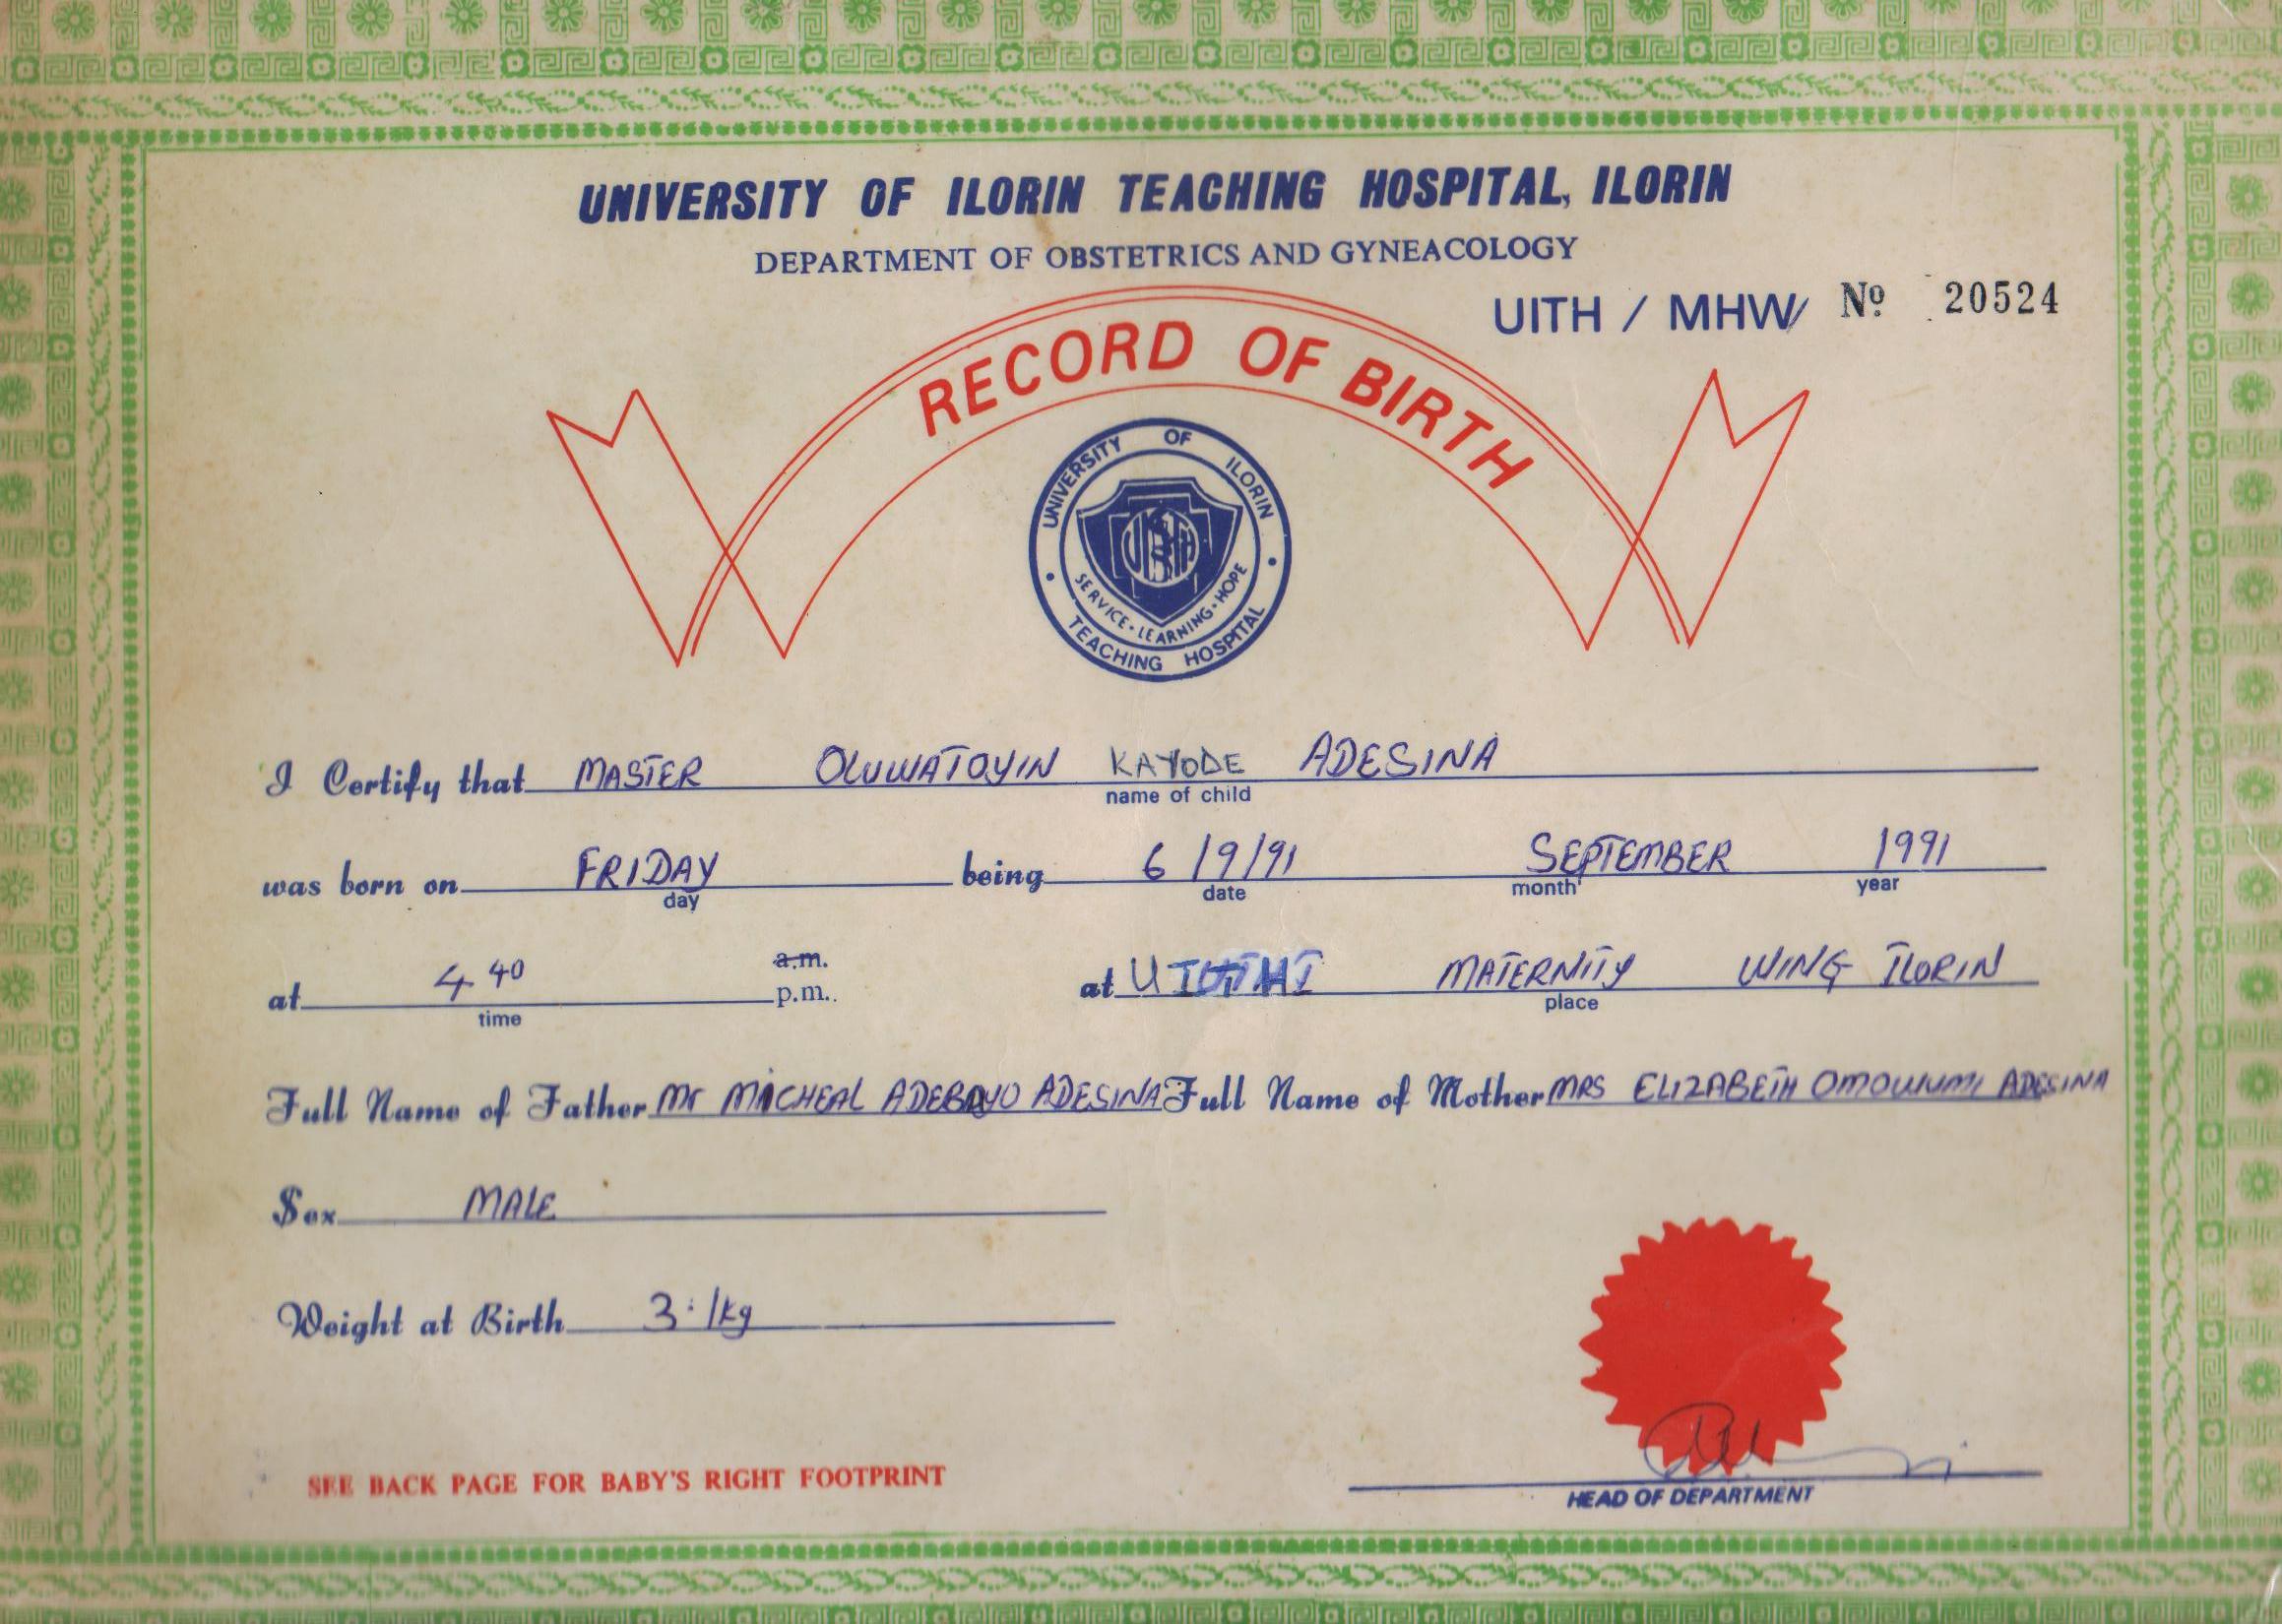 UNIVERSITY OF ILORIN TEACHING HOSPITAL, ILORIN
DEPARTMENT OF OBSTETRICS AND GYNEACOLOGY
UITH / MHW/ Nº 20524
RECORD OF BIRTH
UNIVERSITY OF ILORIN
UITH
SERVICE · LEARNING · HOPE
TEACHING HOSPITAL
I Certify that MASTER OLUWATOYIN KAYODE ADESINA
name of child
was born on FRIDAY being 6/9/91 SEPTEMBER 1991
day date month year
at 4 40 a.m. p.m. at MATERNITY WING ILORIN
time place
Full Name of Father Mr MICHEAL ADEBAYO ADESINA Full Name of Mother MRS ELIZABETH OMOWUMI ADESINA
Sex MALE
Weight at Birth 3.1kg
SEE BACK PAGE FOR BABY'S RIGHT FOOTPRINT
HEAD OF DEPARTMENT